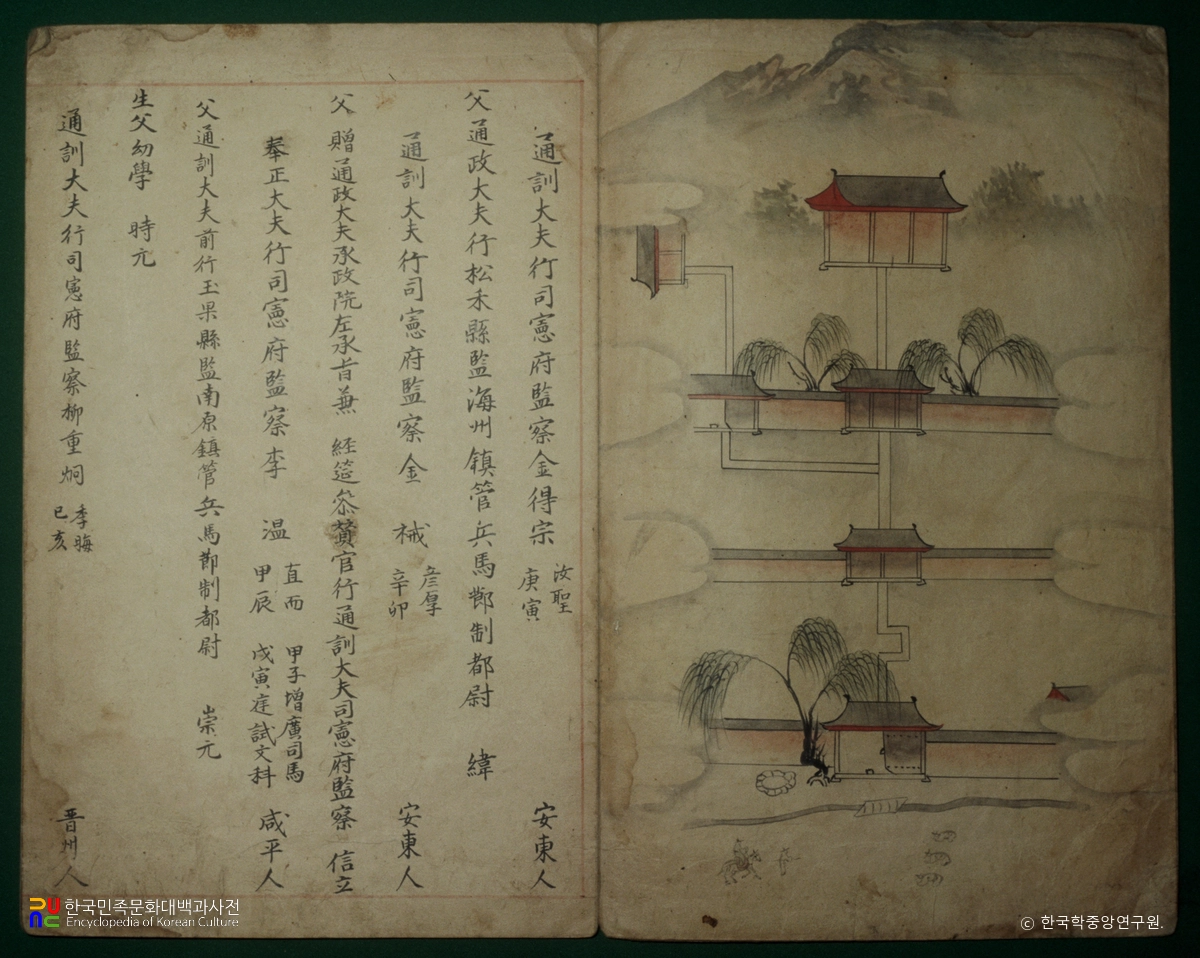 通訓大夫行司憲府監察金得宗 汝聖 庚寅 安東人
父 通政大夫行松禾縣監海州鎮管兵馬節制都尉 緯
通訓大夫行司憲府監察金 彦厚 辛卯 安東人
父 贈通政大夫承政院左承旨兼 経筵叅贊官行通訓大夫司憲府監察 信立
奉正大夫行司憲府監察李 温 直而 甲辰 甲子增廣司馬 戊寅庭試文科 咸平人
父通訓大夫前行玉果縣監南原鎮管兵馬節制都尉 崇元
生父幼學 時元
通訓大夫行司憲府監察柳重炯 季晦 己亥 晋州人
한국민족문화대백과사전
Encyclopedia of Korean Culture
ⓒ 한국학중앙연구원.